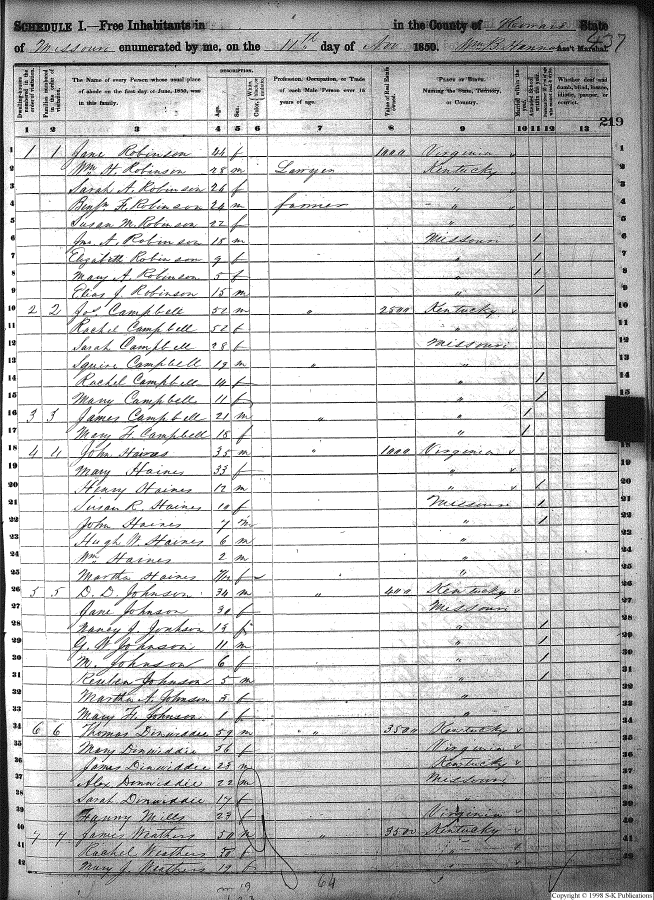 SCHEDULE I.—Free Inhabitants in in the County of Howard State
of Missouri enumerated by me, on the 11th day of Nov 1850. Wm B. Hanna Ass't Marshal. 437
219
Dwelling-houses numbered in the order of visitation.
Families numbered in the order of visitation.
The Name of every Person whose usual place of abode on the first day of June, 1850, was in this family.
DESCRIPTION.
Age.
Sex.
Color,
Profession, Occupation, or Trade of each Male Person over 15 years of age.
Value of Real Estate owned.
PLACE OF BIRTH. Naming the State, Territory, or Country.
Married within the year.
Whether deaf and dumb, blind, insane, idiotic, pauper, or convict.
1 2 3 4 5 6 7 8 9 10 11 12 13
1 1 1 Jane Robinson 44 f 1000 Virginia
2 Wm H. Robinson 28 m Lawyer Kentucky
3 Sarah A. Robinson 26 f "
4 Benjn F. Robinson 24 m farmer "
5 Susan M. Robinson 22 f "
6 Jno A. Robinson 18 m Missouri 1
7 Elizabeth Robinson 9 f " 1
8 Mary A. Robinson 5 f " 1
9 Elias J. Robinson 15 m " 1
10 2 2 Jos Campbell 52 m " 2500 Kentucky
11 Rachel Campbell 52 f "
12 Sarah Campbell 28 f Missouri
13 Squire Campbell 19 m " "
14 Rachel Campbell 14 f " 1
15 Mary Campbell 11 f " 1
16 3 3 James Campbell 21 m " " 1
17 Mary F. Campbell 18 f " 1
18 4 4 John Haines 35 m " 1000 Virginia
19 Mary Haines 33 f "
20 Henry Haines 12 m " 1
21 Susan R. Haines 10 f Missouri 1
22 John Haines 7 m " 1
23 Hugh W. Haines 6 m "
24 Wm Haines 2 m "
25 Martha Haines f "
26 5 5 D. D. Johnson 34 m " 400 Kentucky
27 Jane Johnson 30 f Missouri
28 Nancy J. Jonhson 13 f " 1
29 G. W. Johnson 11 m " 1
30 M. Johnson 6 f " 1
31 Reuben Johnson 5 m " 1
32 Martha A. Johnson 3 f "
33 Mary F. Johnson 1 f "
34 6 6 Thomas Dinwiddie 59 m " " 3500 Kentucky
35 Mary Dinwiddie 56 f Virginia
36 James Dinwiddie 23 m Kentucky
37 Alex Dinwiddie 22 m Missouri
38 Sarah Dinwiddie 17 f "
39 Fanny Mills 23 f Virginia
40 7 7 James Weathers 50 m " 3500 Kentucky
41 Rachel Weathers f "
42 Mary J. Weathers 19 f "
m 19
64
Copyright © 1998 S-K Publications